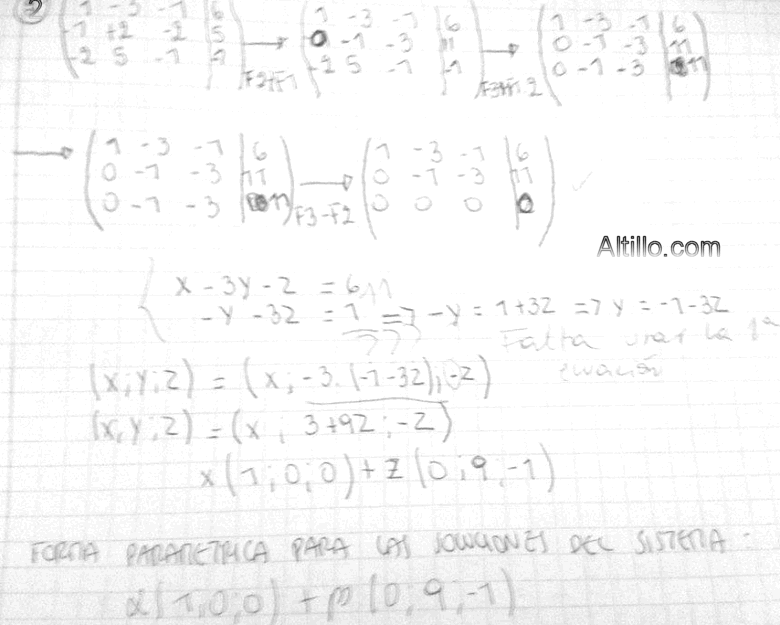 2) ( 1 -3 -1 | 6 ) ( 1 -3 -1 | 6 ) ( 1 -3 -1 | 6 )
( -1 +2 -2 | 5 ) → ( 0 -1 -3 | 11 ) → ( 0 -1 -3 | 11 )
( -2 5 -1 | -1 ) F2+F1 ( -2 5 -1 | -1 ) ( 0 -1 -3 | 11 )
→ ( 1 -3 -1 | 6 ) ( 1 -3 -1 | 6 )
( 0 -1 -3 | 11 ) → ( 0 -1 -3 | 11 )
( 0 -1 -3 | 11 ) F3-F2 ( 0 0 0 | 0 )
Altillo.com
{ x - 3y - z = 6
-y - 3z = 1 => -y = 1+3z => y = -1-3z
11
???
Falta usar la 1ª
ecuación
(x; y; z) = (x; -3.(-1-3z); -z)
(x; y; z) = (x; 3+9z; -z)
x(1;0;0) + z(0;9;-1)
FORMA PARAMETRICA PARA LAS SOLUCIONES DEL SISTEMA:
α(1,0;0) + β(0,9;-1)